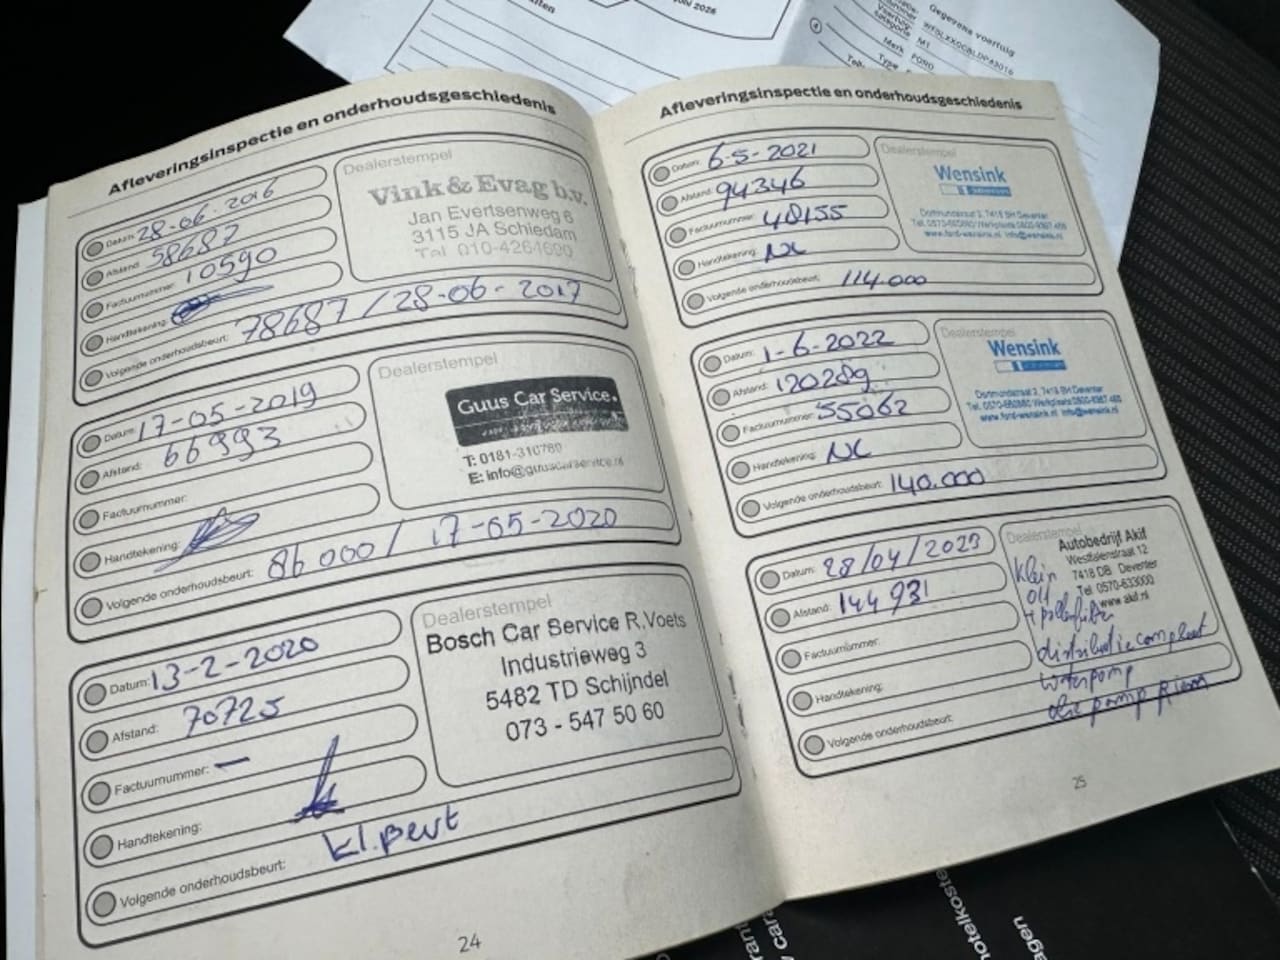 Gegevens voertuig
M1
Merk FORD
Type
Afleveringsinspectie en onderhoudsgeschiedenis
Datum: 28-06-2016
Afstand: 58687
Factuurnummer: 10590
Handtekening:
Volgende onderhoudsbeurt: 78687 / 28-06-2017
Dealerstempel
Vink & Evag b.v.
Jan Evertsenweg 6
3115 JA Schiedam
Tel. 010-4264600
Datum: 17-05-2019
Afstand: 66993
Factuurnummer:
Handtekening:
Volgende onderhoudsbeurt: 86000 / 17-05-2020
Dealerstempel
Guus Car Service.
T: 0181-310780
E: info@guuscarservice.nl
Datum: 13-2-2020
Afstand: 70725
Factuurnummer: –
Handtekening:
Volgende onderhoudsbeurt: kl. beurt
Dealerstempel
Bosch Car Service R.Voets
Industrieweg 3
5482 TD Schijndel
073 - 547 50 60
24
Afleveringsinspectie en onderhoudsgeschiedenis
Datum: 6-5-2021
Afstand: 94346
Factuurnummer: 48155
Handtekening: NL
Volgende onderhoudsbeurt: 114.000
Dealerstempel
Wensink
www.ford-wensink.nl
Datum: 1-6-2022
Afstand: 120289
Factuurnummer: 55062
Handtekening: NL
Volgende onderhoudsbeurt: 140.000
Dealerstempel
Wensink
www.ford-wensink.nl
Datum: 28/04/2023
Afstand: 144 931
Factuurnummer:
Handtekening:
Volgende onderhoudsbeurt:
Dealerstempel
Autobedrijf Akif
Westfalenstraat 12
7418 DB Deventer
Tel. 0570-633000
www.akif.nl
klein
olie
+ pollenfilter
distributie compleet
waterpomp
olie pomp riem
25